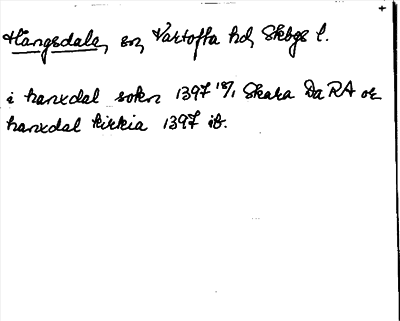 Hångsdala, sn, Vartofta hd, Skbgs l.
i hanxdal sokn 1397 18/1 Skara Da RA or
hanxdal kirkia 1397 ib.